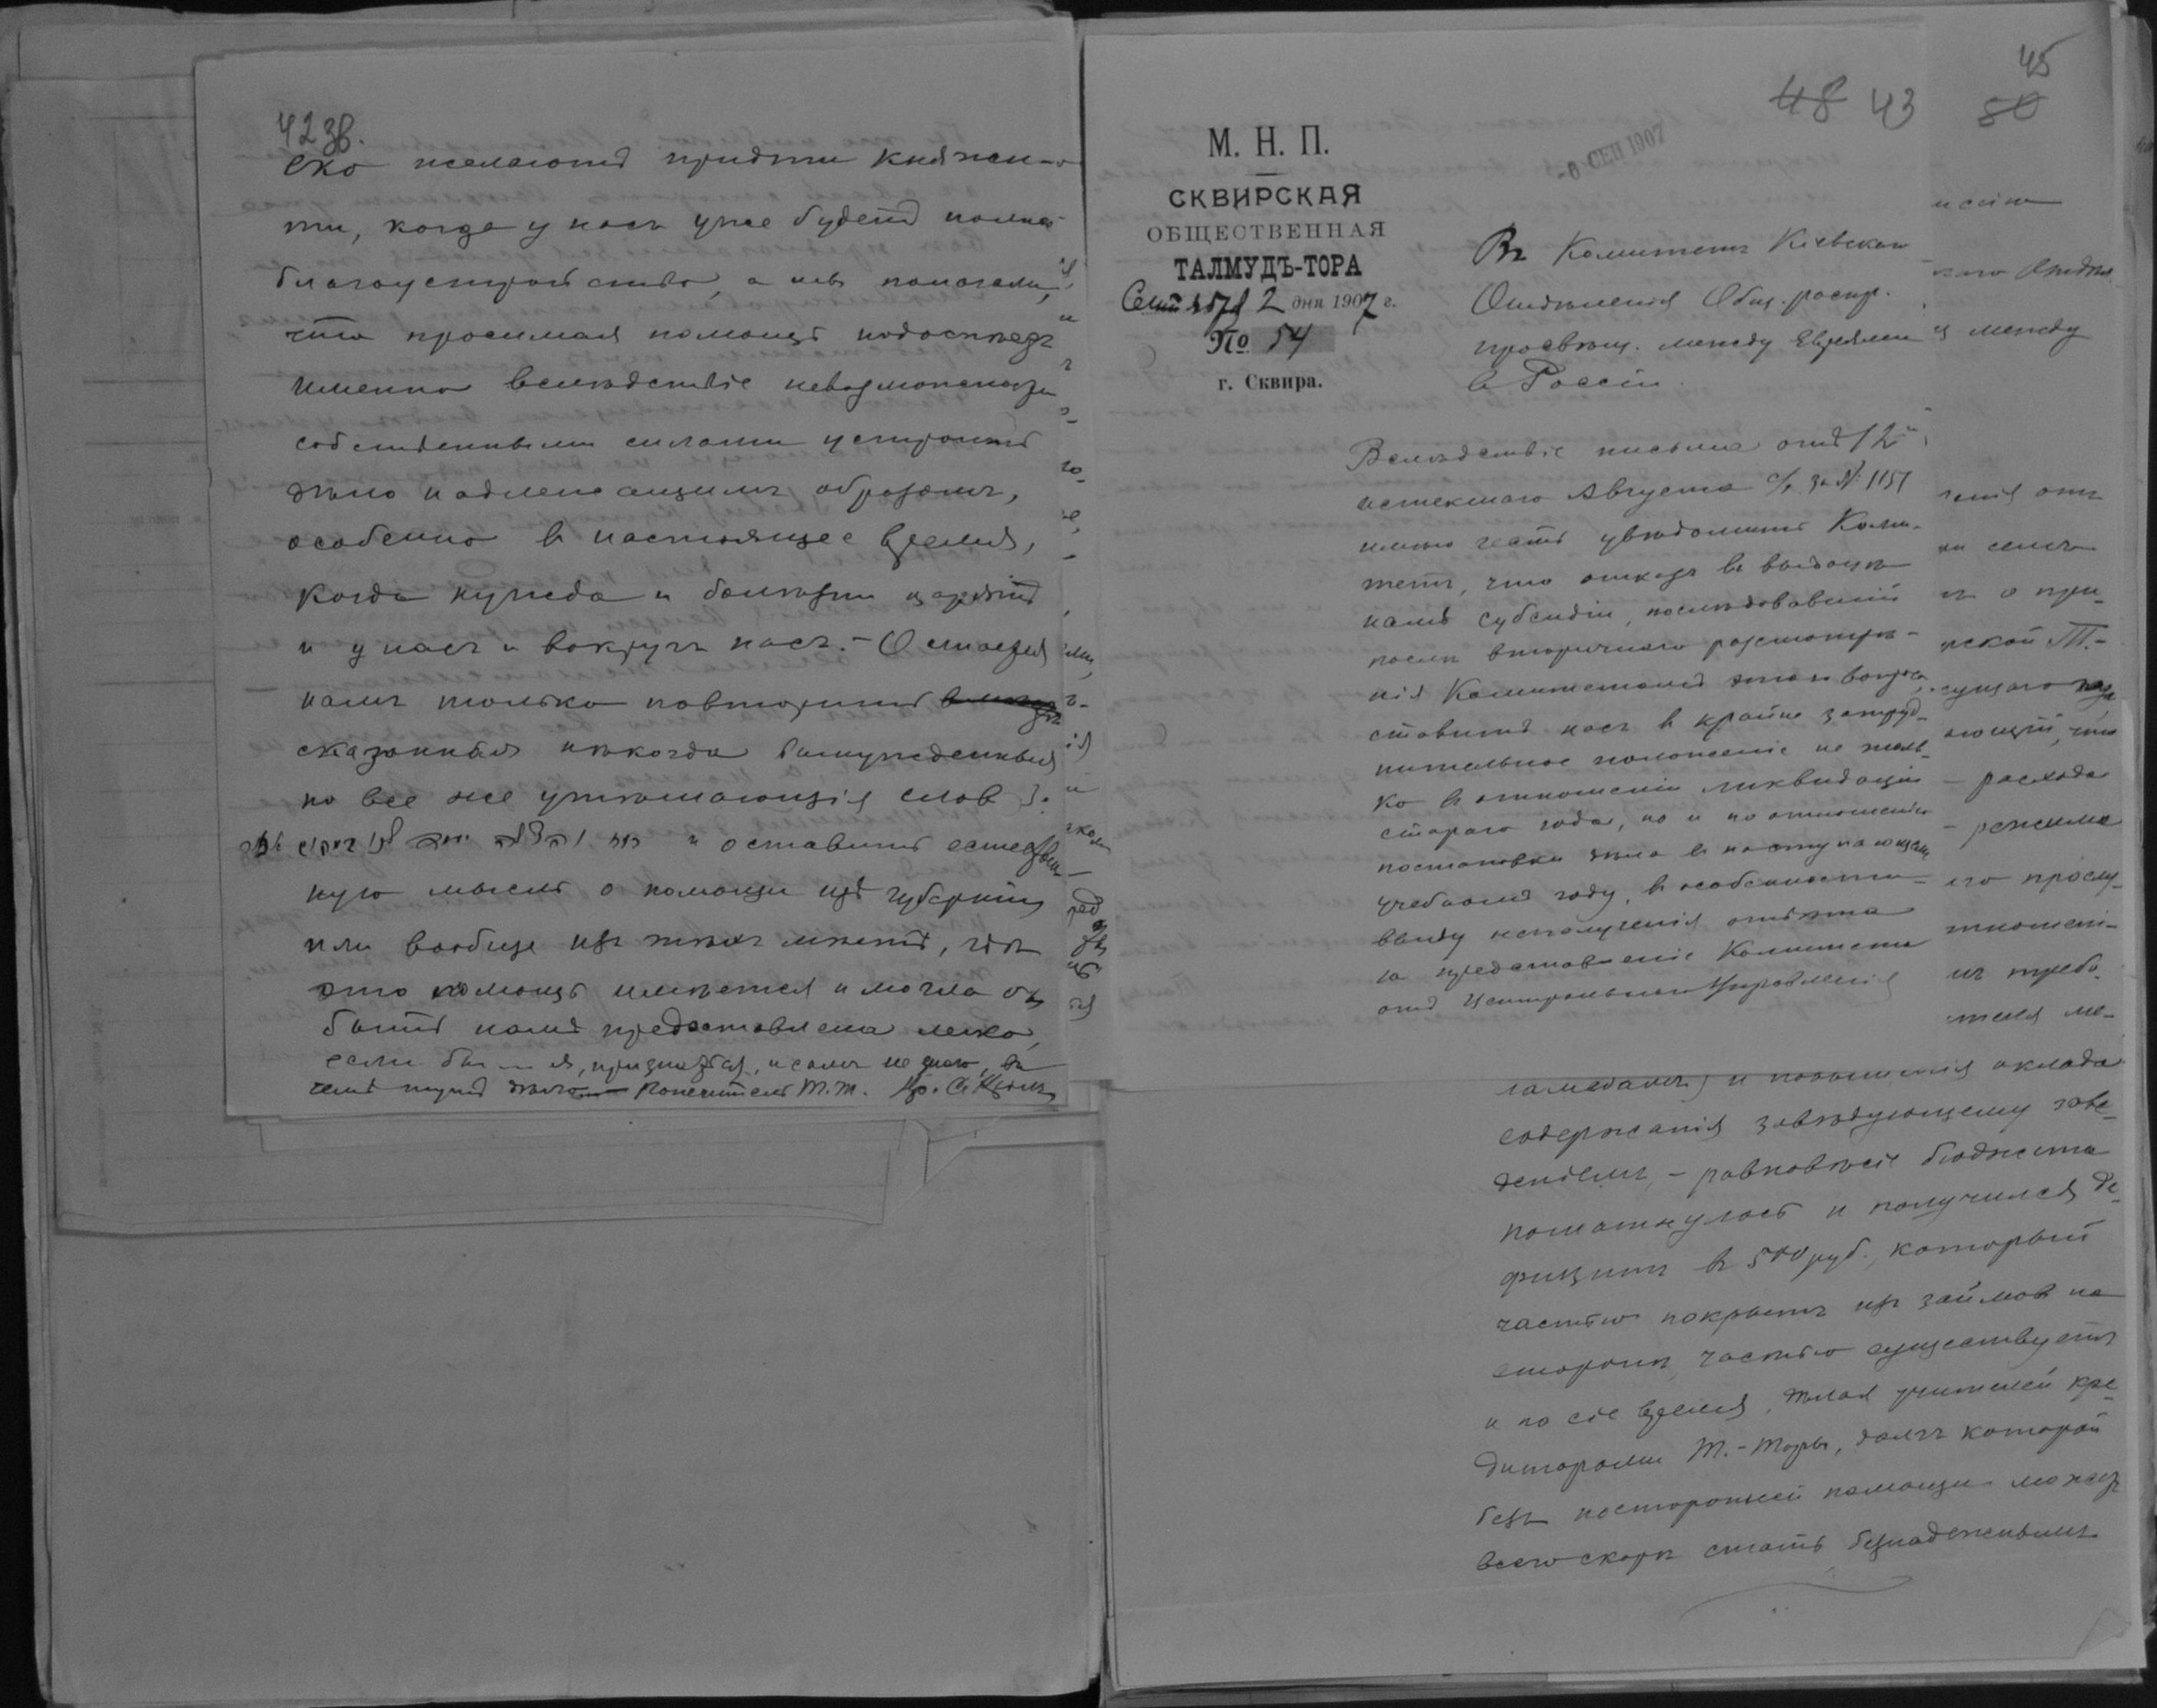 42 зв.
ско желаютъ придти къ намъ
ти, когда у насъ уже будетъ полное
благоустройство, а мы полагали,
что просимая помощь подоспѣетъ
именно вслѣдствіе невозможности
собственными силами устроить
дѣло надлежащимъ образомъ,
особенно въ настоящее время,
когда нужда и болѣзни царятъ
и у насъ и вокругъ насъ. – Остается
намъ только повторить
сказанныя нѣкогда
но все же утѣшающія слова:
и оставить
ную мысль о помощи изъ губерніи
или вообще изъ тѣхъ мѣстъ, гдѣ
это помощь имѣется и могла бы
быть намъ предоставлена легко,
если бы – я, признаться, и самъ не знаю, за
чѣмъ тутъ дѣло. Попечитель Т.Т.
48 43
-6 СЕН 1907
М. Н. П.
СКВИРСКАЯ
ОБЩЕСТВЕННАЯ
ТАЛМУДЪ-ТОРА
Сентября 2 дня 1907 г.
№ 54
г. Сквира.
Въ Комитетъ Кіевскаго
Отдѣленія Общ. распр.
просвѣщ. между Евреями
въ Россіи.
Вслѣдствіе письма отъ 12
истекшаго Августа с/г за № 1151
имѣю честь увѣдомить Коми-
тетъ, что отказъ въ выдачѣ
намъ субсидіи, послѣдовавшій
послѣ вторичнаго разсмотрѣ-
нія Комитетомъ этого вопроса,
ставитъ насъ въ крайне затруд-
нительное положеніе не толь-
ко въ отношеніи ликвидаціи
стараго года, но и по отношенію
постановки дѣла въ наступающемъ
учебномъ году, въ особенности
ввиду неполученія отвѣта
на представленіе Комитета
отъ Центральнаго Управленія
45
50
между
генія отъ
о при-
рской Т.-
сущаго
ющій, что
– расхода
– режима
его прослу-
тношені-
ихъ требо-
ится ме-
ламедамъ) и повышенія оклада
содержанія завѣдующему заве-
деніемъ, – равновѣсіе бюджета
пошатнулось и получился де-
фицитъ въ 500 руб., который
частью покрытъ изъ займовъ на
сторонѣ, частью существуетъ
и по сіе время, дѣлая учителей кре-
диторами Т.-Торы, долгъ которой
безъ посторонней помощи можетъ
всего скорѣе стать безнадежнымъ